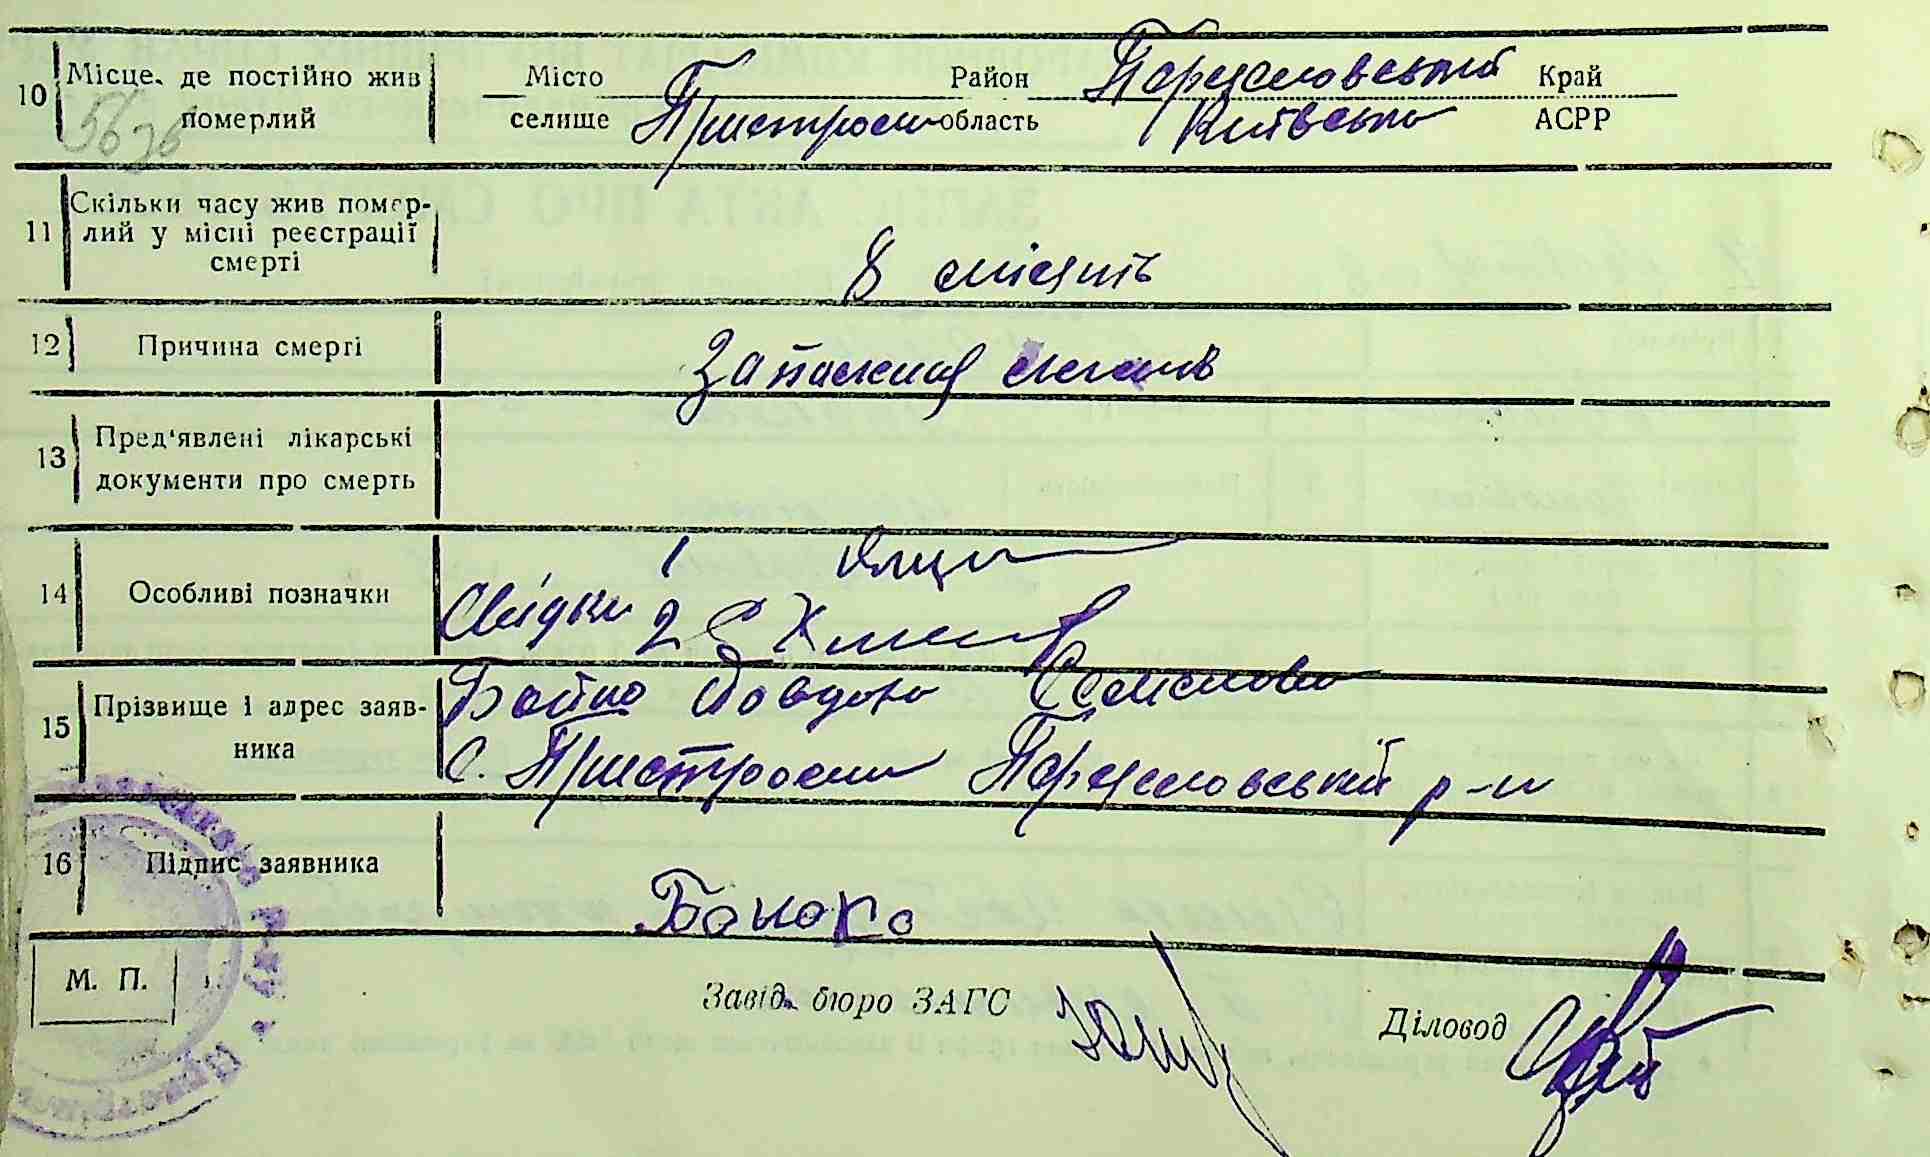 10 Місце, де постійно жив померлий
Місто Район Переяславський Край
селище Пристроми область Київська АСРР
11 Скільки часу жив помер-
лий у місці реєстрації
смерті
8 місяців
12 Причина смерті
Запалення легенів
13 Пред'явлені лікарські
документи про смерть
14 Особливі позначки
1
Свідки 2
15 Прізвище і адрес заяв-
ника
Бойко Явдоха Семеновна
с. Пристроми Переяславський р-н
16 Підпис заявника
Бойко
М. П.
Завід. бюро ЗАГС
Діловод